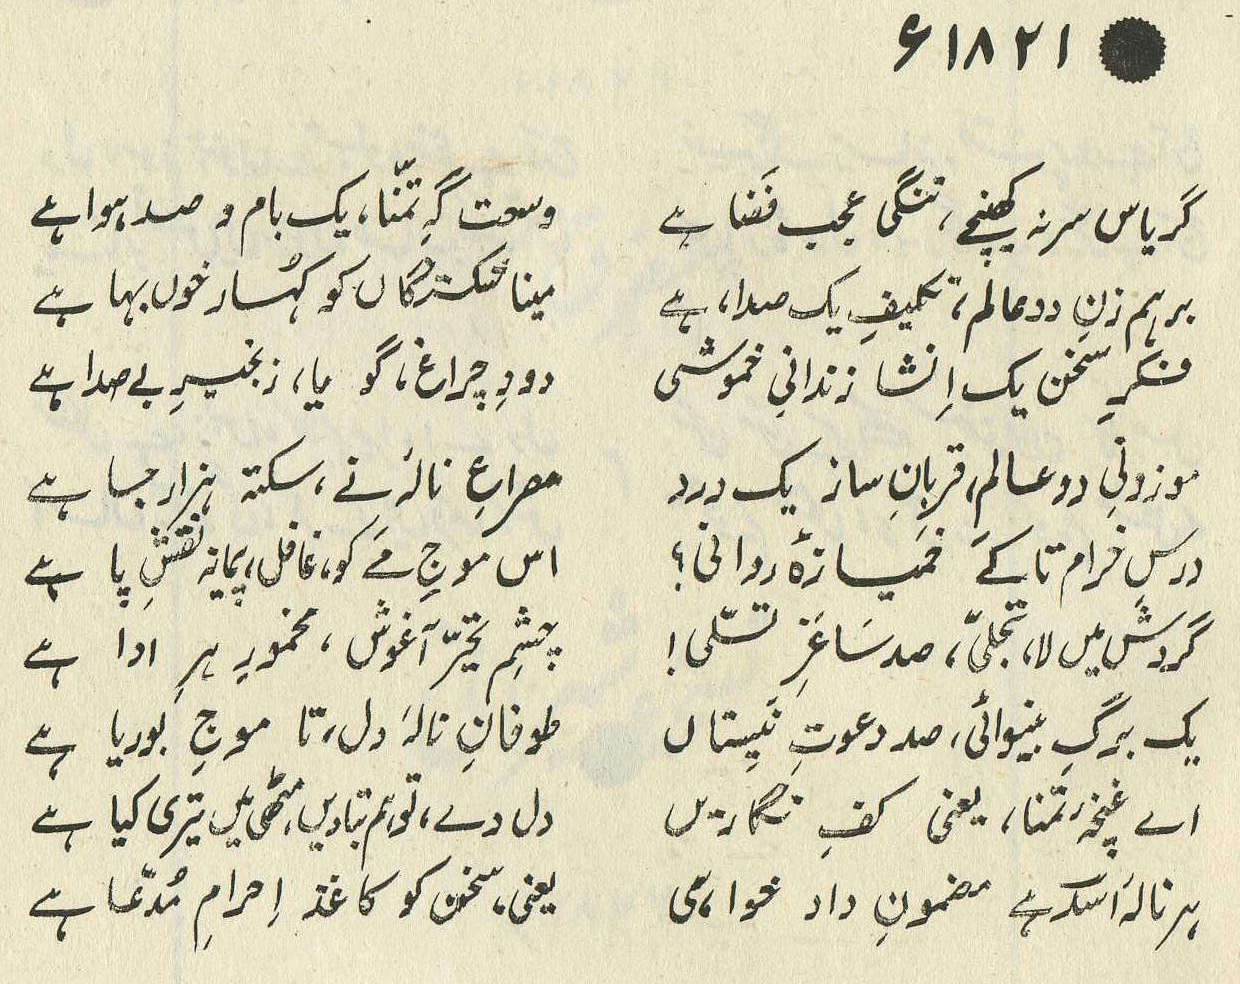 ۱۸۲۱ء
گر یاس سر نہ کھینچے، تنگی عجب فَضا ہے وسعت گہِ تمنّا، یک بام و صد ہوا ہے
برہم زنِ دو عالم، تکلیفِ یک صدا، ہے مینا شکستگاں کو کہُسار خوں بہا ہے
فکرِ سخن یک اِنشا زندانیِ خموشی دودِ چراغ، گویا، زنجیرِ بے صدا ہے
موزونیِ دو عالم، قربانِ سازِ یک درد مصراعِ نالۂ نے، سکتہ ہزار جا ہے
درسِ خرام تا کَے خمیازۂ روانی؟ اس موجِ مے کو، غافل، پیمانہ نقشِ پا ہے
گردش میں لا، تجلّی، صد ساغَرِ تسلّی! چشمِ تحیّر آغوش، مخمورِ ہر ادا ہے
یک برگِ بینوائی، صد دعوتِ نَیِستاں طوفانِ نالۂ دل، تا موجِ بوریا ہے
اے غنچۂ تمنا، یعنی کفِ نگاریں دل دے، تو ہم بتا دیں، مٹھی میں تیری کیا ہے
ہر نالۂ اسدؔ ہے مضمونِ داد خواہی یعنی، سخن کو کاغذ اِحرامِ مُدّعا ہے